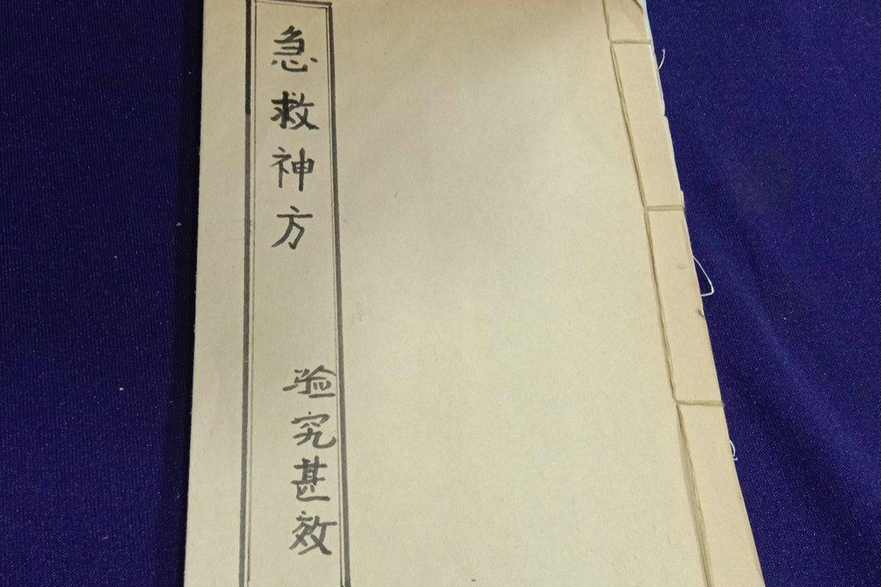 急救神方
验究甚效